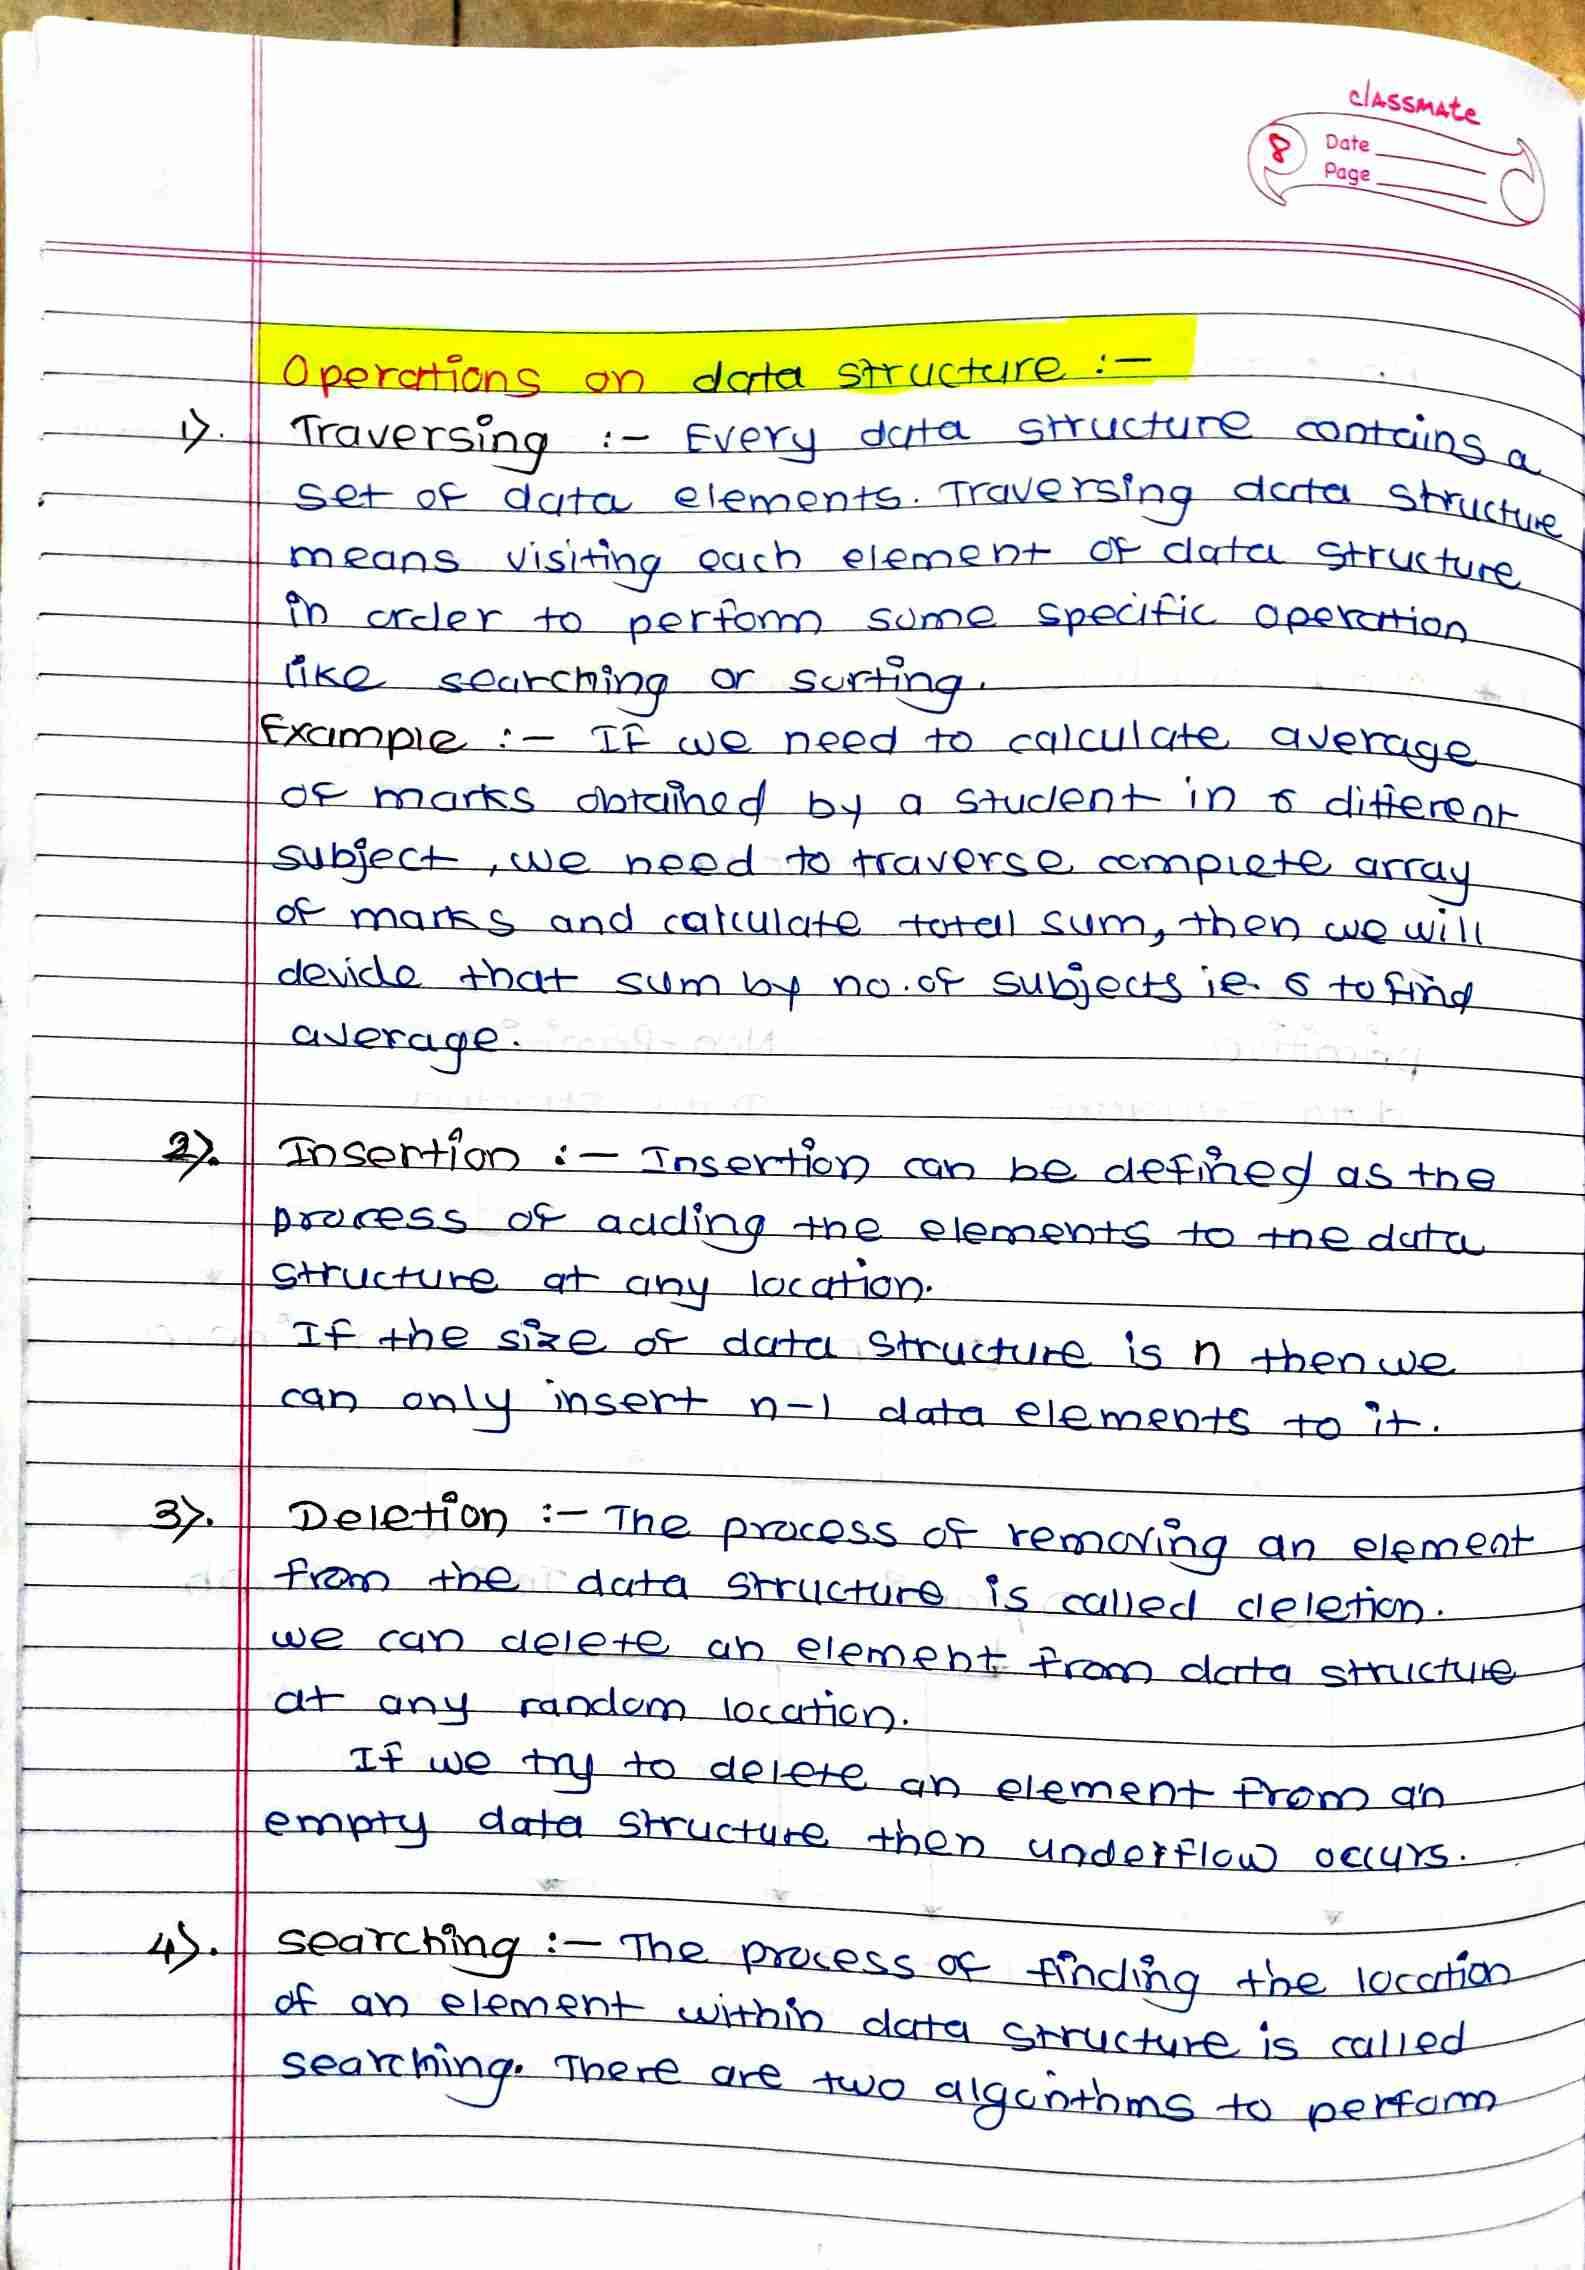 classmate
8
Date
Page
Operations on data structure :-
1). Traversing :- Every data structure contains a
set of data elements. Traversing data structure
means visiting each element of data structure
in order to perform some specific operation
like searching or sorting.
Example :- If we need to calculate average
of marks obtained by a student in 6 different
subject, we need to traverse complete array
of marks and calculate total sum, then we will
devide that sum by no. of subjects ie. 6 to find
average.
2). Insertion :- Insertion can be defined as the
process of adding the elements to the data
structure at any location.
If the size of data structure is n then we
can only insert n-1 data elements to it.
3). Deletion :- The process of removing an element
from the data structure is called deletion.
we can delete an element from data structure
at any random location.
If we try to delete an element from an
empty data structure then underflow occurs.
4). searching :- The process of finding the location
of an element within data structure is called
searching. There are two algorithms to perform